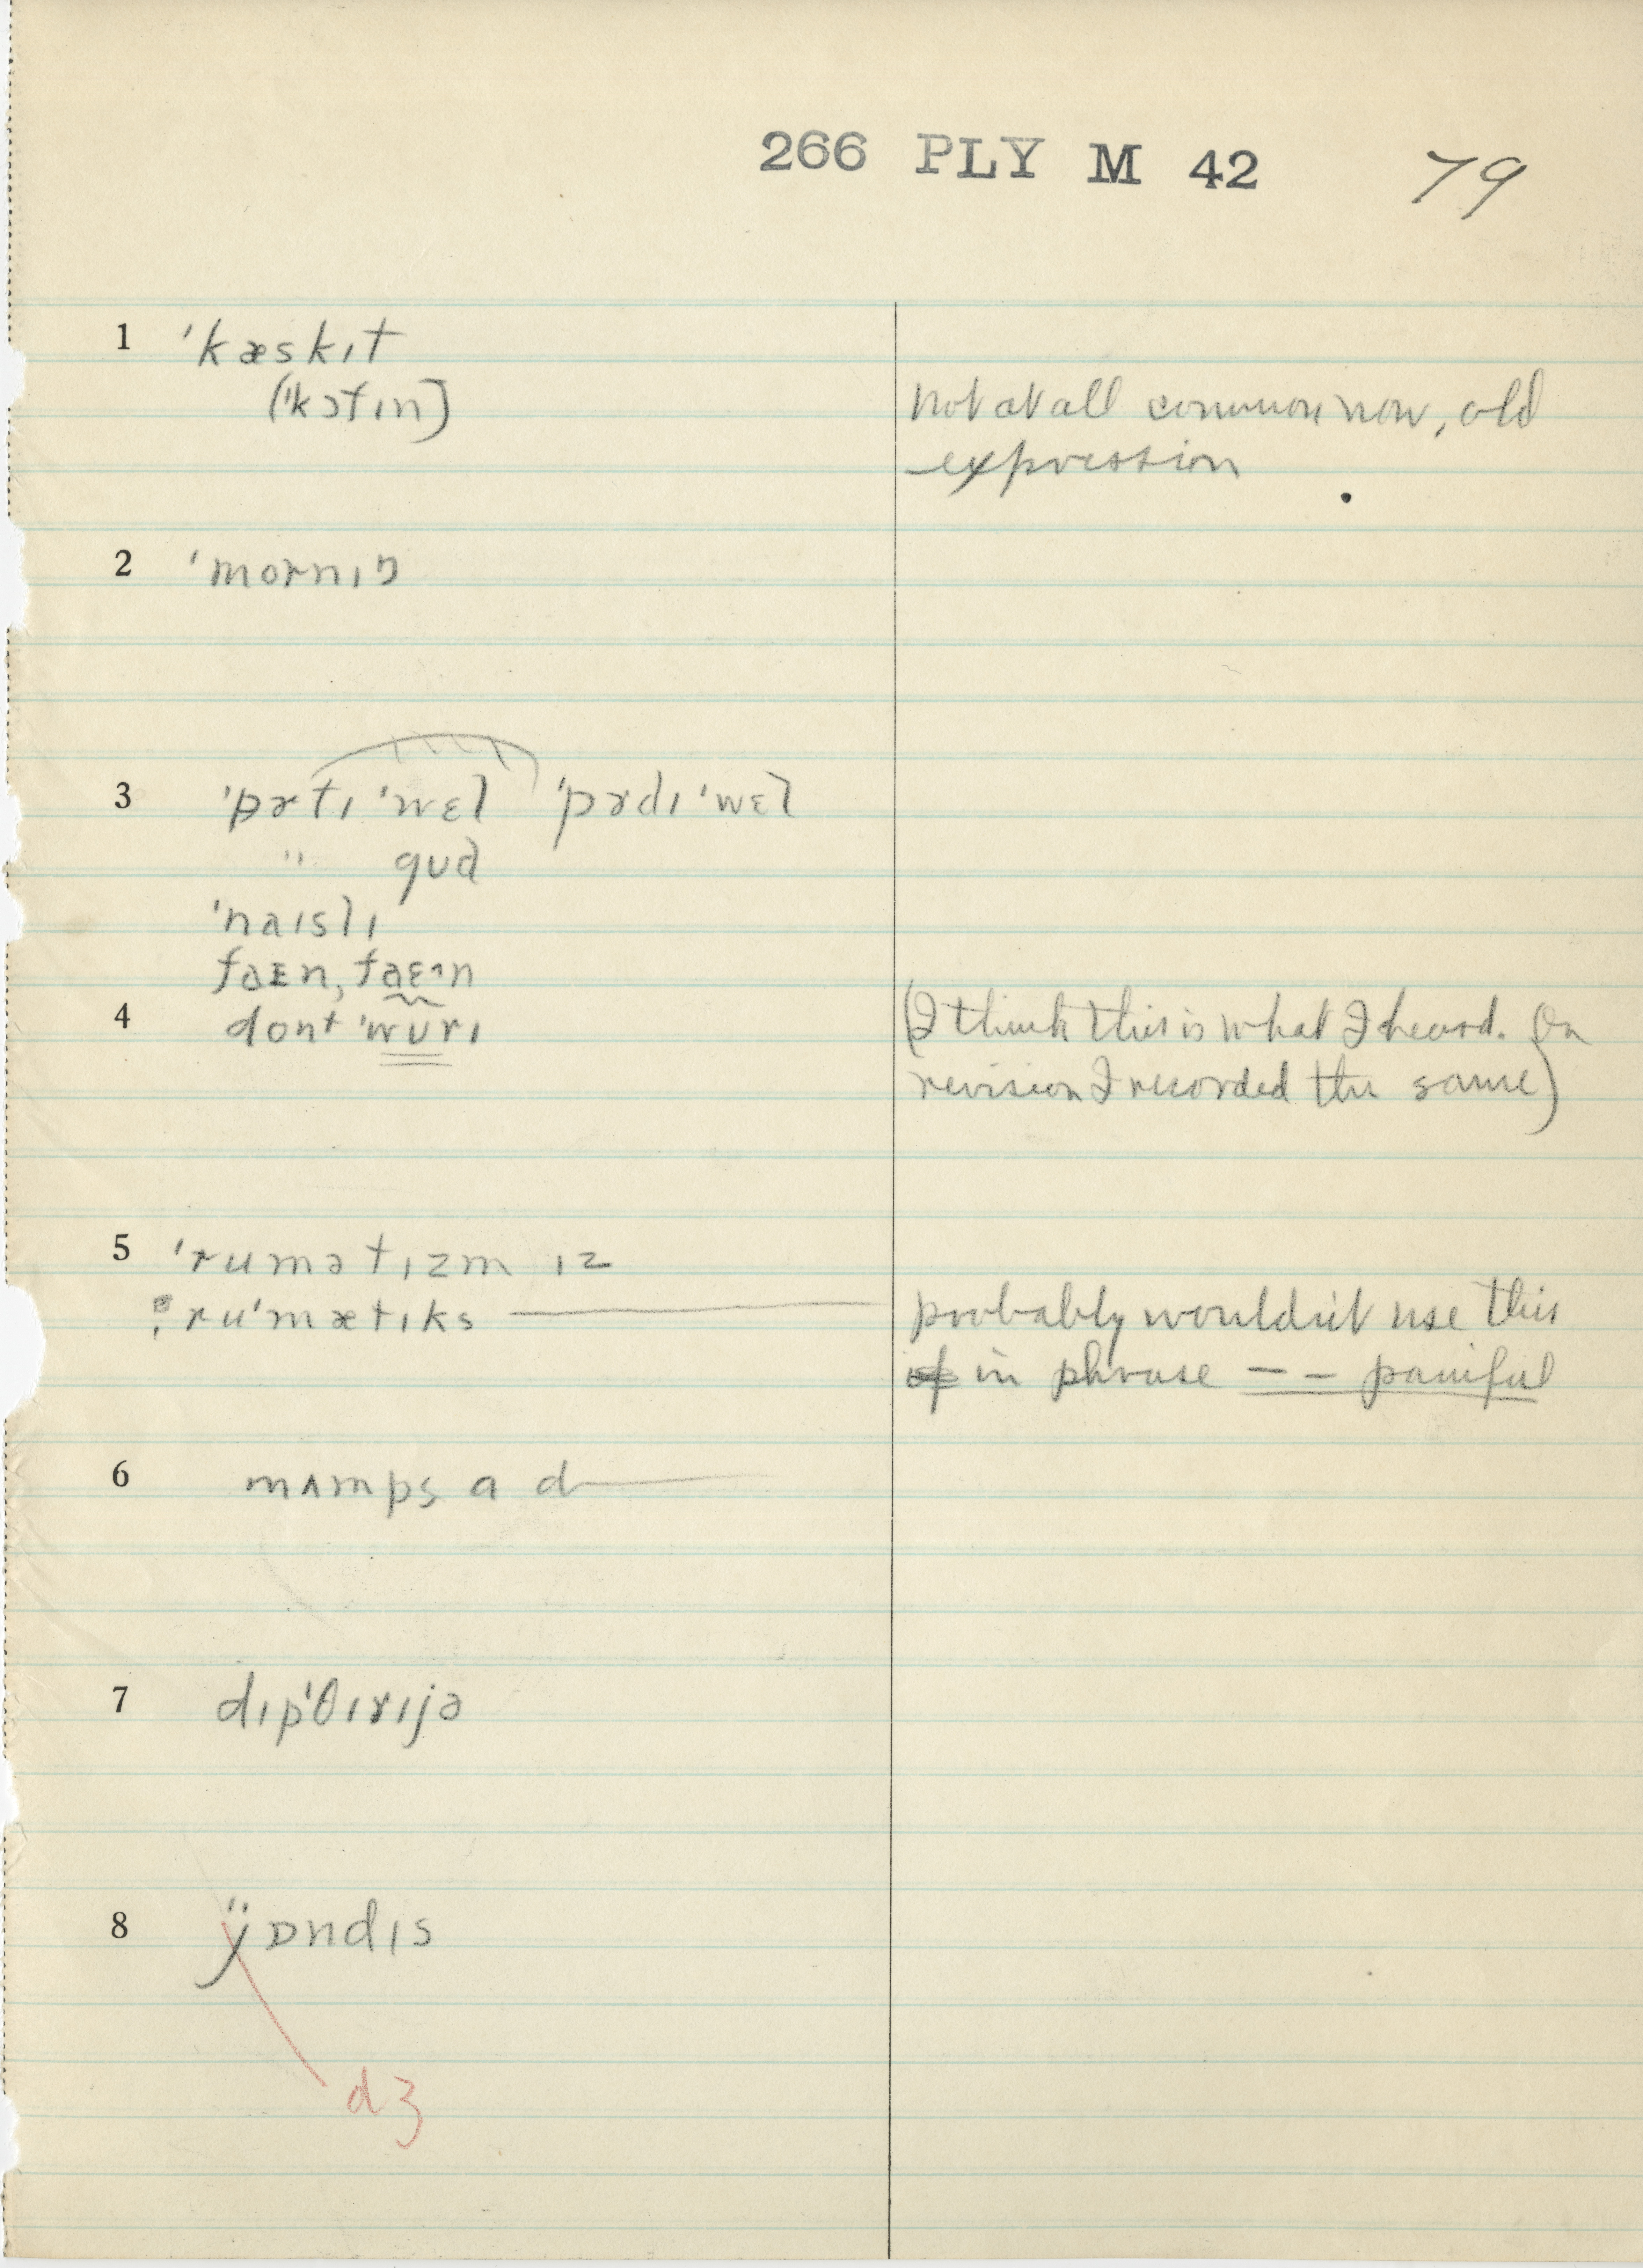 266 PLY M 42 79
1 ˈkæskɪt
(ˈkɔfɪn) not at all common now, old
expression
2 ˈmornɪŋ
3 ˈpɤtɪ ˈwɛl ˈpɤdɪ ˈwɛl
" gud
ˈnaɪslɪ
faɛn, faɛn
4 dont ˈwʊrɪ (I think this is what I heard. On
revision I recorded the same)
5 ˈrumətɪzm ɪz
ruˈmætɪks — probably wouldn't use this
in phrase – – painful
6 mʌmps a d—
7 dɪpˈθɪrɪjə
8 ǰɒndɪs
dʒ